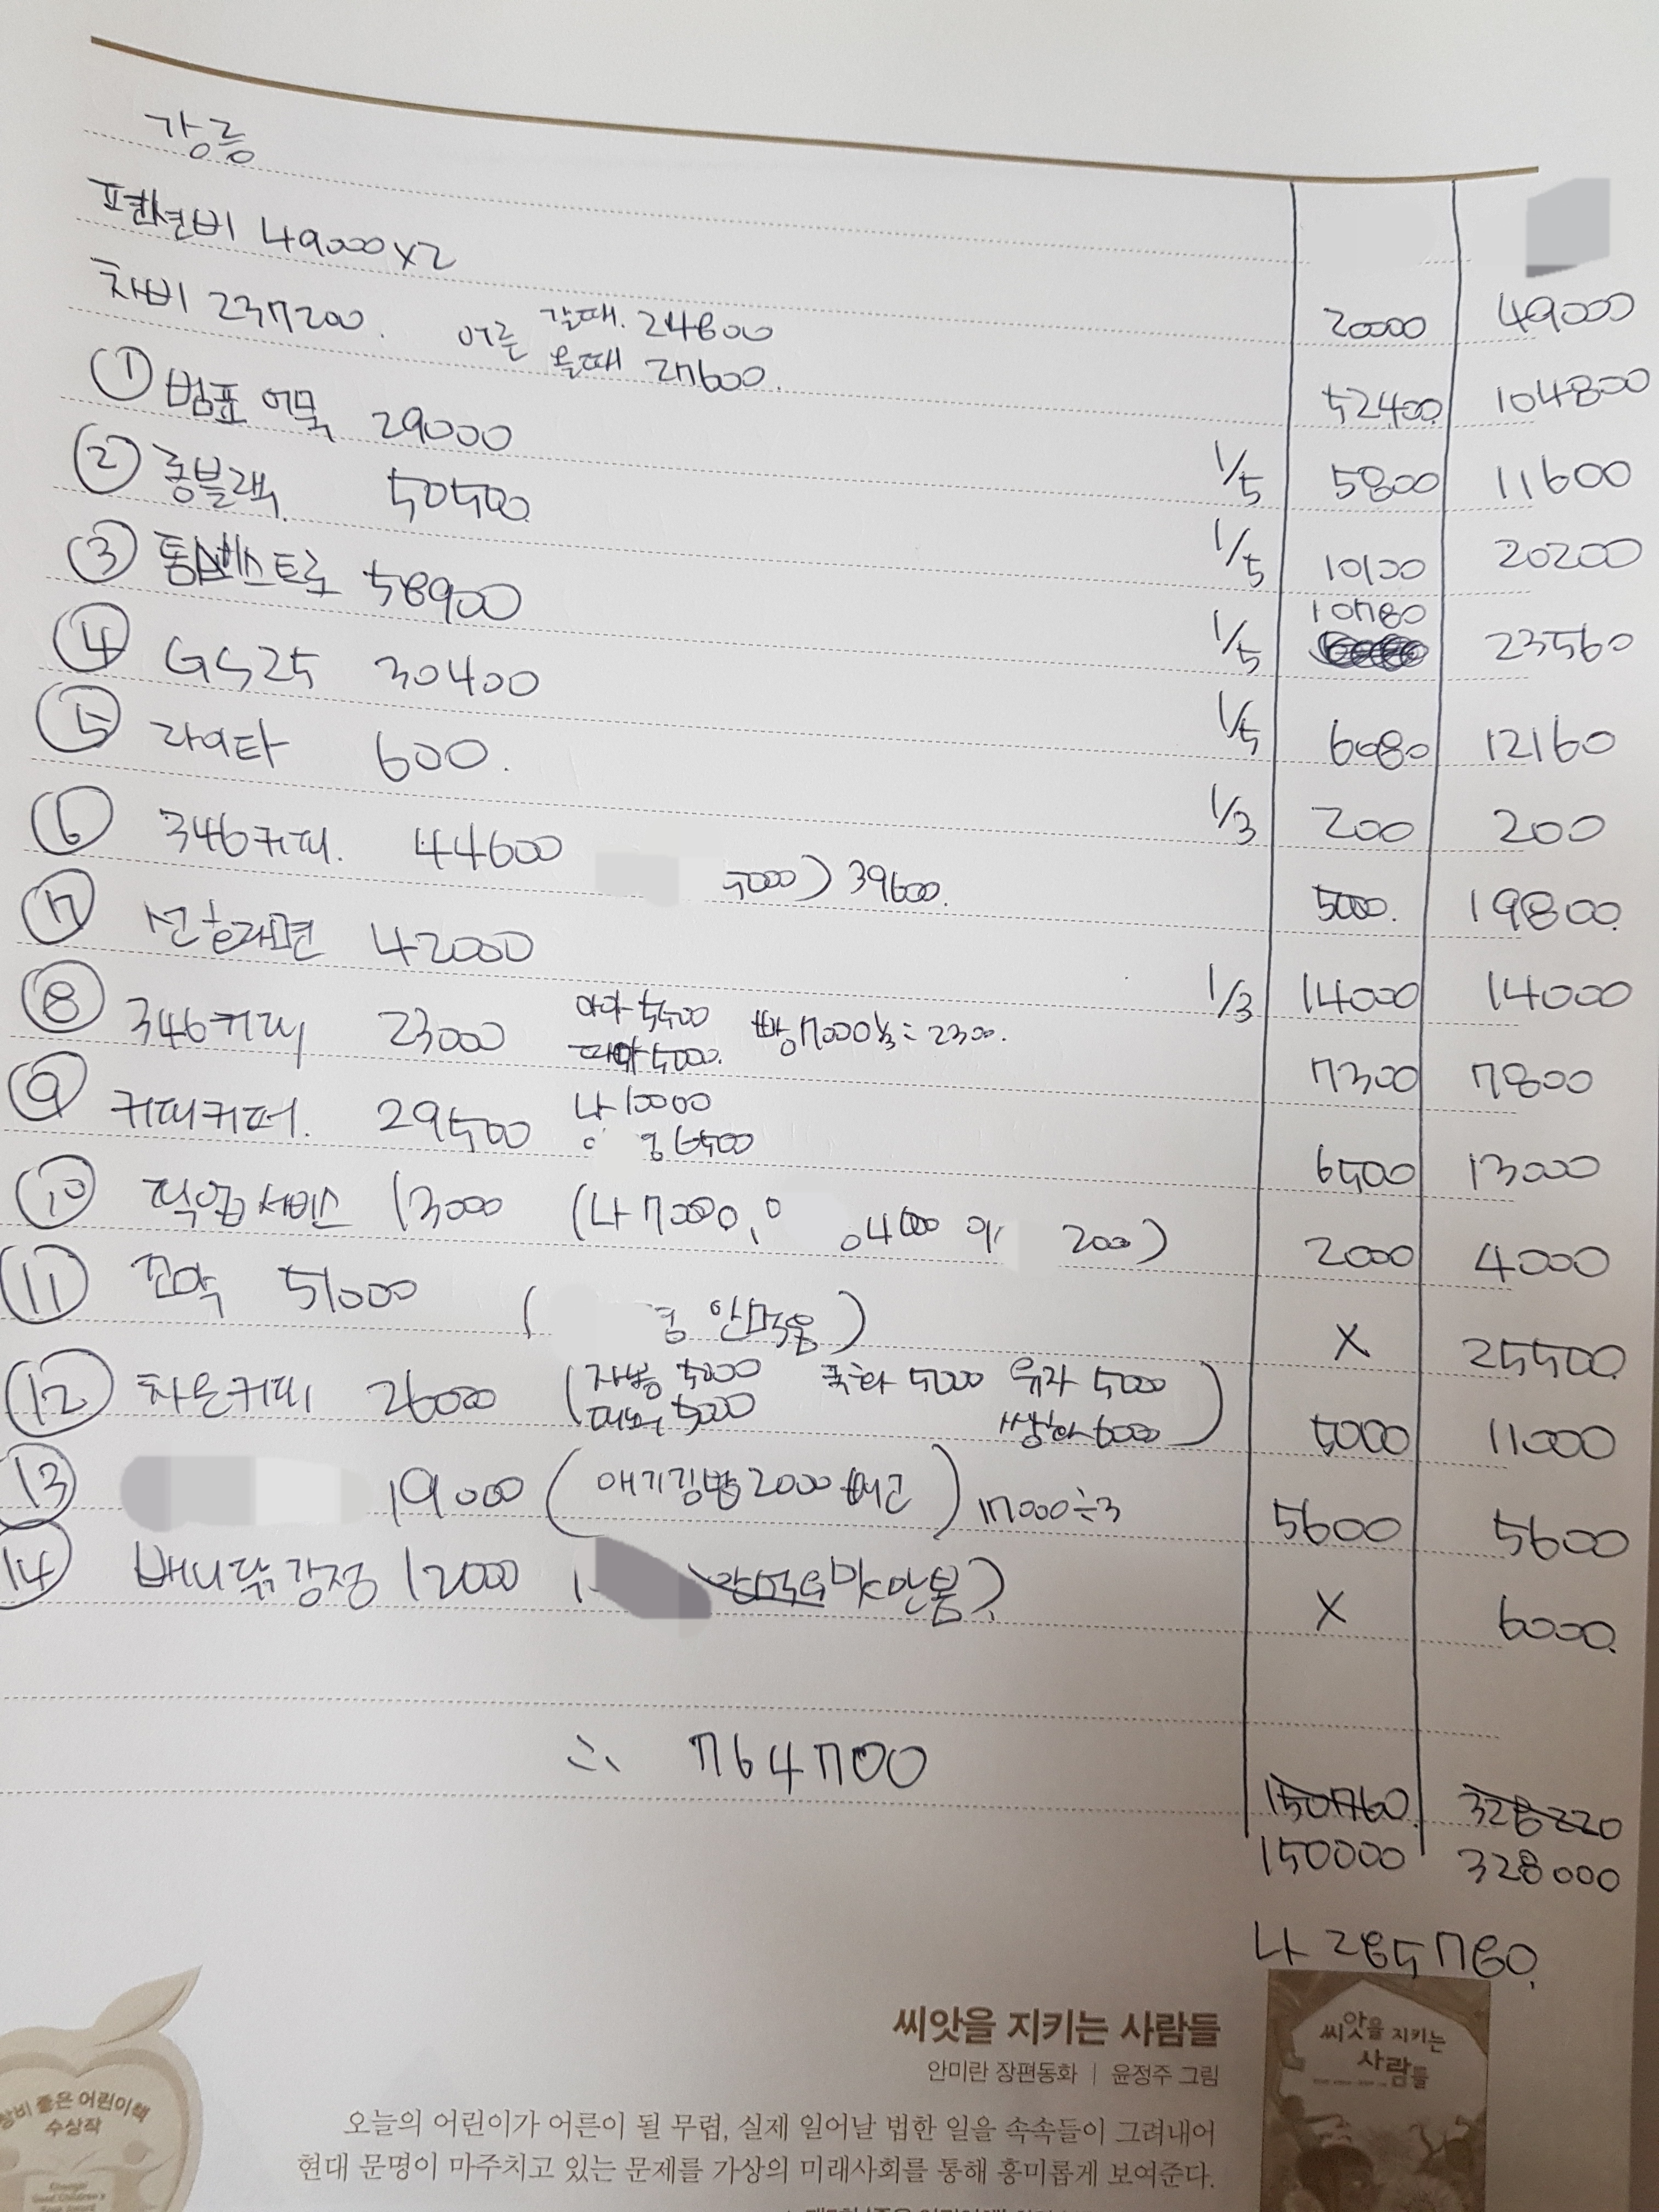 강릉
펜션비 49000x2 20000 49000
차비 237200. 어른 갈때. 24800 52400 104800
올때 27600.
① 범표 어묵 29000 1/5 5800 11600
② 롱블랙 50500 1/5 10100 20200
③ 통베스트로 58900 1/5 10780 23560
④ GS25 30400 1/5 6080 12160
⑤ 라이타 600. 1/3 200 200
⑥ 346커피. 44600 5000) 39600. 5000. 19800
⑦ 42000 1/3 14000 14000
⑧ 346커피 23000 아아 5500 빵 7000 ⅓ = 2300. 7300 7800
따아 5000.
⑨ 커피커퍼. 29500 나 10000 6500 13000
6500
⑩ 픽업서비스 13000 (나 7000, 4000 2000) 2000 4000
⑪ 꼬막 51000 ( 안먹음) X 25500
⑫ 차은커피 26000 (자몽 5000 국화 5000 유자 5000 5000 11000
5000 쌍화 6000)
⑬ 19000 (애기김밥 2000 빼고) 17000÷3 5600 5600
⑭ 배니닭강정 12000 맛안봄) X 6000
∴ 764700
150760. 328220
150000 328000
나 285780.
씨앗을 지키는 사람들
안미란 장편동화 | 윤정주 그림
씨앗을 지키는
사람들
좋은 어린이책
수상작
오늘의 어린이가 어른이 될 무렵, 실제 일어날 법한 일을 속속들이 그려내어
현대 문명이 마주치고 있는 문제를 가상의 미래사회를 통해 흥미롭게 보여준다.